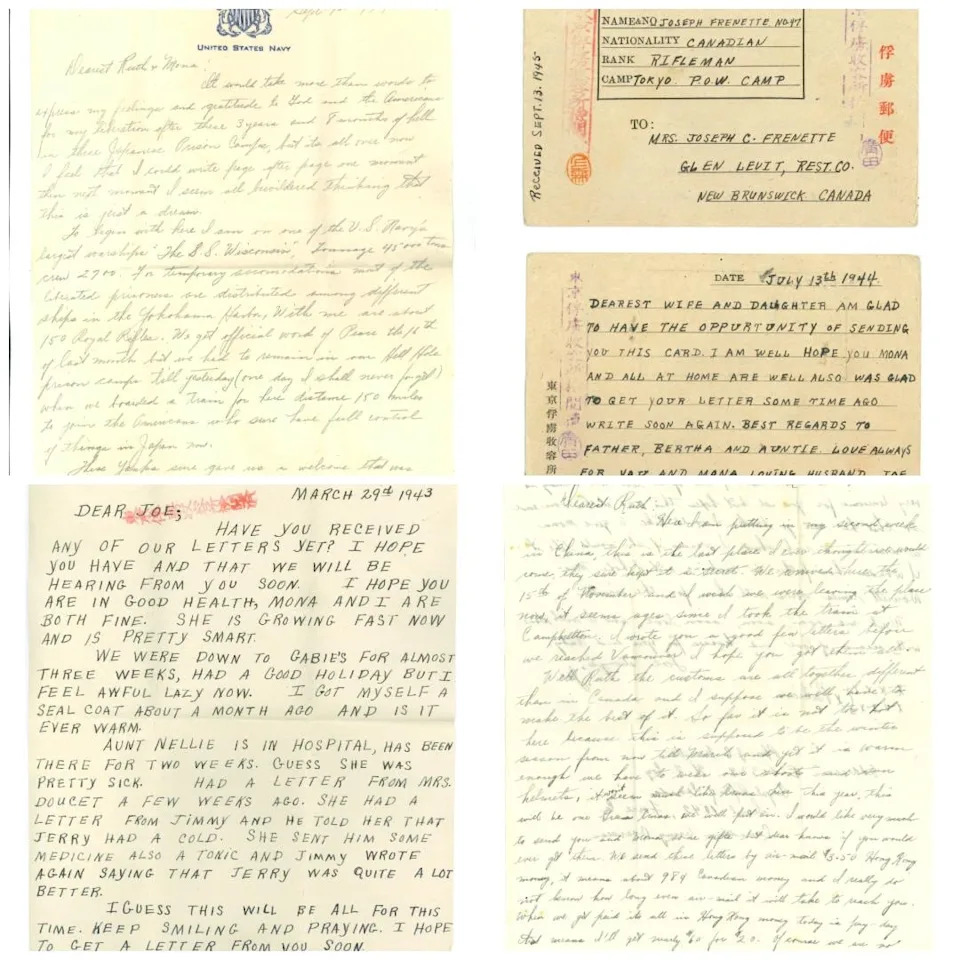 UNITED STATES NAVY
Dearest Ruth & Mona:
It would take more than words to
express my feelings and gratitude to God and the Americans
for my liberation after these 3 years and 8 months of hell
in these Japanese Prison Camps, but its all over now
I feel that I could write page after page one moment
then next moment I seem all bewildered thinking that
this is just a dream.
To begin with here I am on one of the U.S. Navy's
largest warships "The S.S. Wisconsin", Tonnage 45000 tons
crew 2700. For temporary accomodations most of the
liberated prisoners are distributed among different
ships in the Yokohama Harbor, With me are about
150 Royal Rifles. We got official word of Peace the 16th
of last month but we had to remain in our Hell Hole
prison camps till yesterday (one day I shall never forget)
when we boarded a train for here distance 150 miles
to join the Americans who sure have full control
of things in Japan now.
These Yanks sure gave us a welcome that was
NAME&NO JOSEPH FRENETTE NO.97
NATIONALITY CANADIAN
RANK RIFLEMAN
CAMP TOKYO. P.O.W. CAMP
RECEIVED SEPT. 13. 1945
俘虜郵便
TO:
MRS. JOSEPH C. FRENETTE
GLEN LEVIT, REST. CO.
NEW BRUNSWICK CANADA
DATE JULY 13th 1944.
DEAREST WIFE AND DAUGHTER AM GLAD
TO HAVE THE OPPURTUNITY OF SENDING
YOU THIS CARD. I AM WELL HOPE YOU MONA
AND ALL AT HOME ARE WELL ALSO WAS GLAD
TO GET YOUR LETTER SOME TIME AGO
WRITE SOON AGAIN. BEST REGARDS TO
FATHER, BERTHA AND AUNTIE. LOVE ALWAYS
FOR YOU AND MONA LOVING HUSBAND JOE
東京俘虜收容所
MARCH 29rd 1943
DEAR JOE;
HAVE YOU RECEIVED
ANY OF OUR LETTERS YET? I HOPE
YOU HAVE AND THAT WE WILL BE
HEARING FROM YOU SOON. I HOPE YOU
ARE IN GOOD HEALTH, MONA AND I ARE
BOTH FINE. SHE IS GROWING FAST NOW
AND IS PRETTY SMART.
WE WERE DOWN TO GABIE'S FOR ALMOST
THREE WEEKS, HAD A GOOD HOLIDAY BUT I
FEEL AWFUL LAZY NOW. I GOT MYSELF A
SEAL COAT ABOUT A MONTH AGO AND IS IT
EVER WARM.
AUNT NELLIE IS IN HOSPITAL, HAS BEEN
THERE FOR TWO WEEKS. GUESS SHE WAS
PRETTY SICK. HAD A LETTER FROM MRS.
DOUCET A FEW WEEKS AGO. SHE HAD A
LETTER FROM JIMMY AND HE TOLD HER THAT
JERRY HAD A COLD. SHE SENT HIM SOME
MEDICINE ALSO A TONIC AND JIMMY WROTE
AGAIN SAYING THAT JERRY WAS QUITE A LOT
BETTER.
I GUESS THIS WILL BE ALL FOR THIS
TIME. KEEP SMILING AND PRAYING. I HOPE
TO GET A LETTER FROM YOU SOON
Dearest Ruth:
Here I am putting in my second week
in China, this is the last place I ever thought we would
come, they sure kept it a secret. We arrived here the
15th of November and I wish we were leaving the place
now, it seems ages since I took the train at
Campbellton. I wrote you a good few letters before
we reached Vancouver I hope you got them all.
Well Ruth the customs are all together different
than in Canada and I suppose we will have to
make the best of it. So far it is not too hot
here because this is supposed to be the winter
season from now till March and yet it is warm
enough we have to wear our shorts and sun
helmets, it wont seem much like Xmas here this year, this
will be one Xmas we will put in. I would like very much
to send you and Mona some gifts but dear knows if you would
ever get them. We send these letters by air-mail $3.50 Hong Kong
money, it means about 98¢ Canadian money and I really do
not know how long even air-mail it will take to reach you.
When we get paid its all in Hong Kong money today is pay-day
that means I'll get nearly $60 for $20. Of course we are not